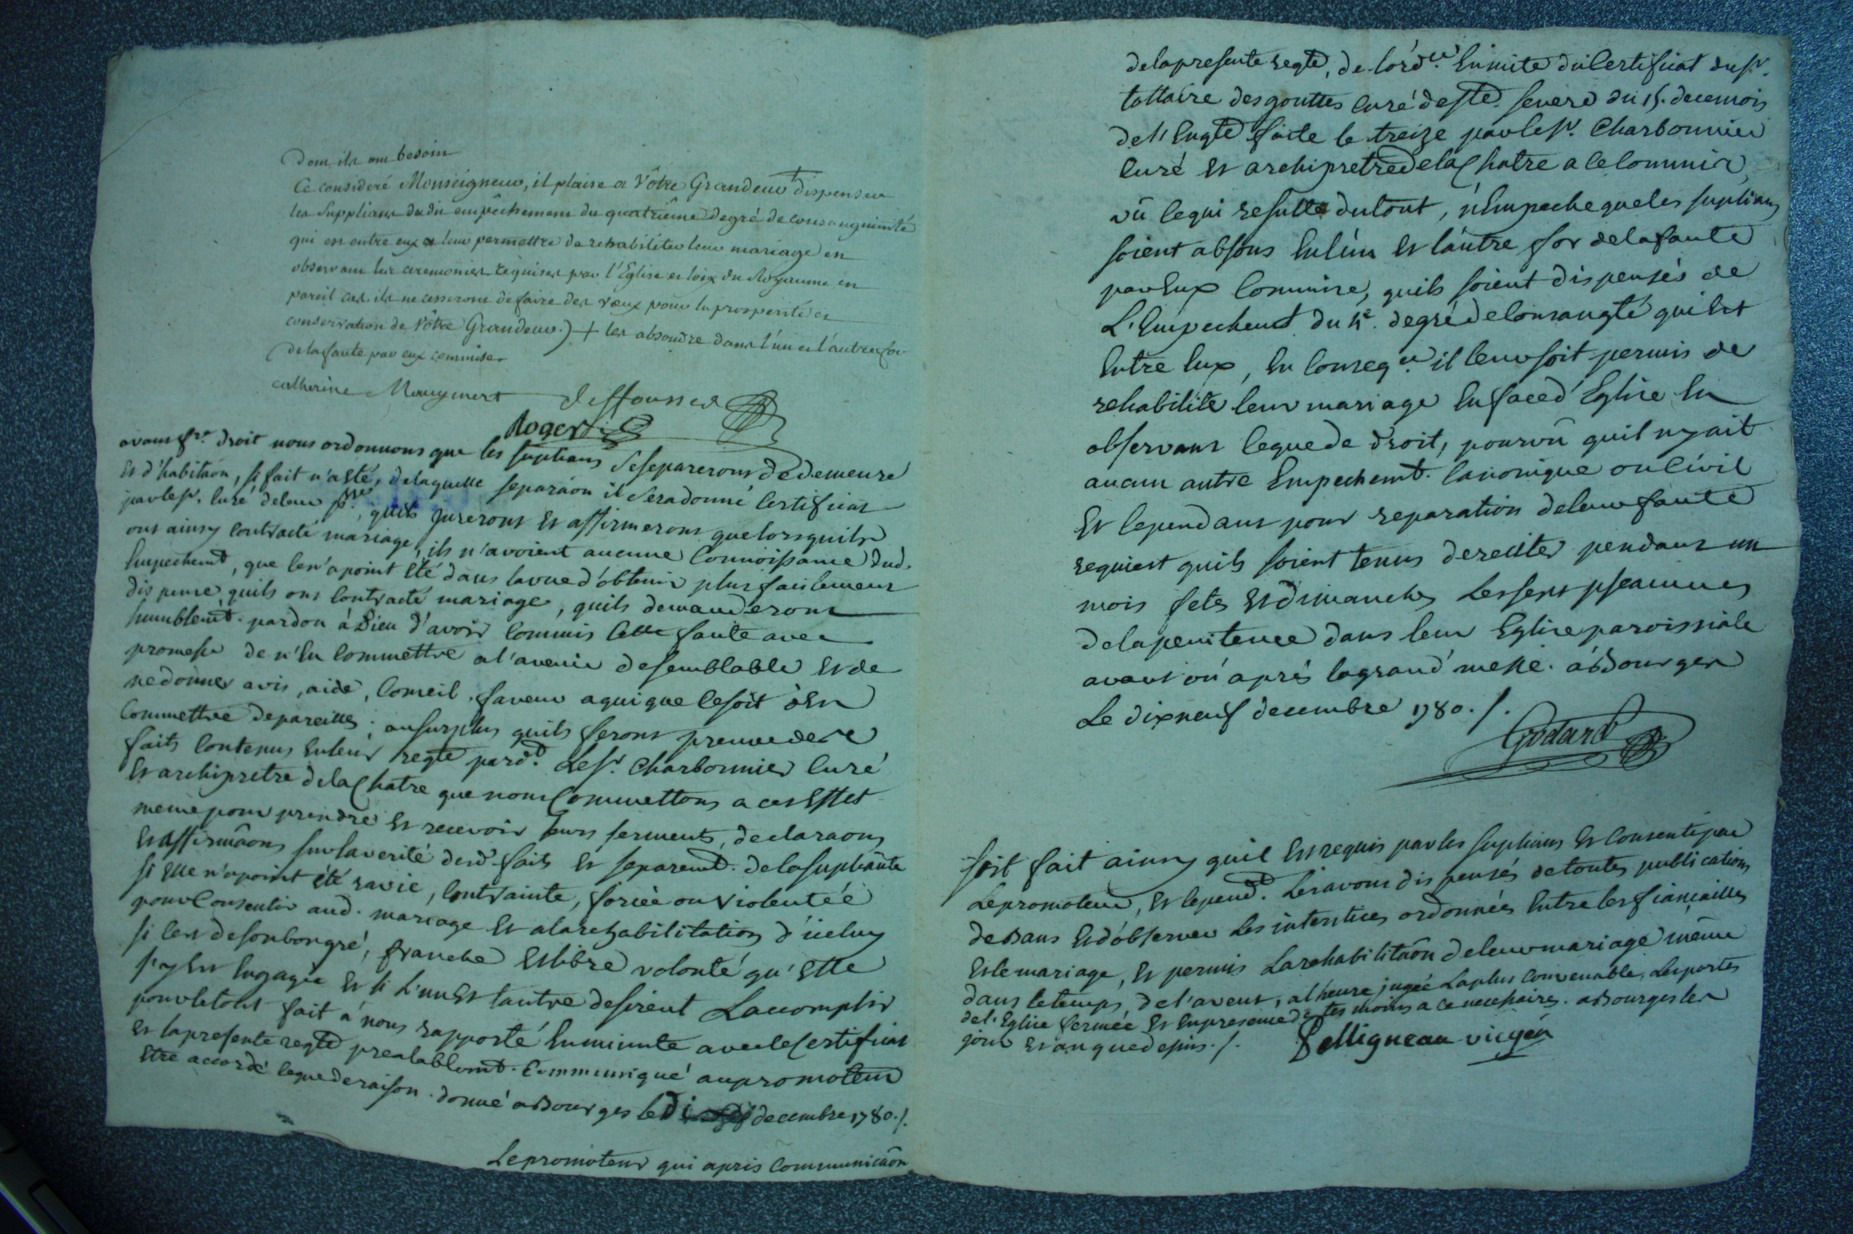 Dont ils ont besoin
Ce consideré Monseigneur, il plaise a Vôtre Grandeur dispenser
les Supplians du dit empêchement du quatriême degré de consanguinité
qui est entre eux & leur permettre de rehabiliter leur mariage en
observant les ceremonies requises par l'Eglise et loix du Royaume en
pareil cas ils ne cesseront de faire des vœux pour la prosperité et
conservation de Vôtre Grandeur.) + les absoudre dans l'un et l'autre for
de la faute par eux commise
catherine
Roger
avant fre. droit nous ordonnons que les suplians Se separeront de demeure
Et d'habitaõn, si fait n'a esté, de laquelle separaõn il sera donné Certificat
par le sr. Curé de leur psse., quils jureront Et affirmeront que lorsquils
ont ainsy contracté mariage, ils n'avoient aucune Connoissance dud.
Empechemt, que ce n'a point Eté dans la vue d'obtenir plus facilement
dispense quils ont Contracté mariage, quils demanderont
humblemt. pardon à Dieu d'avoir Commis Cette faute avec
promesse de n'En Commettre a l'avenir de semblable Et de
ne donner avis, aide, Conseil, faveur a qui que ce soit d'En
Commettre de pareilles; au surplus quils feront preuve des
faits Contenus En leur reqte pard. le Sr. Charbonnier Curé
Et archipretre de la Chatre que nous Commettons a cet Effet
meme pour prendre Et recevoir leurs serments, declaraõns
Et affirmaõns sur la verité desd. faits Et separemt. de la Supliante
si Elle n'a point été ravie, Contrainte, forcée ou violentée
pour Consentir aud. mariage Et a la rehabilitation d'iceluy
si c'est de son bon gré, franche Et libre volonté qu'Elle
s'y Est Engagée Et si l'un Et l'autre desirent L'accomplir
pour le tout fait à nous rapporté En minute avec le Certificat
et la presente reqte prealablemt. Communiqué au promoteur
Etre accordé ce que de raison. donné a Bourges le decembre 1780./.
Le promoteur qui apris Communicaõn
de la presente reqte, de l'ordce. En suite du Certificat du sr.
tattaire desgouttes Curé de Ste. Severe du 15. de ce mois
de l'Enqte faite le treize par le sr. Charbonnier
Curé Et archipretre de la Chatre a ce Commis,
vû ce qui resulte du tout, n'Empeche que les suplians
soient absous En l'un Et l'autre for de la faute
par Eux Commise, quils soient dispensés de
L'Empechemt du 4e. degré de Consangté qui Est
Entre Eux, En conseqce. il leur soit permis de
rehabiliter leur mariage En face d'Eglise En
observant ce que de droit, pourvû quil n'y ait
aucun autre Empechemt. Canonique ou Civil
Et Cependant pour reparation de leur faute
requiert quils soient tenus de reciter pendant un
mois fetes Et dimanches Les sept pseaumes
de la penitence dans leur Eglise paroissiale
avant ou après la grand'messe. à Bourges
Le dix neuf decembre 1780./.
Godard
Soit fait ainsy quil Est requis par les Suplians Et Consenti par
Le promoteur, Et cepend. Les avons dispensés de toutes publications
de bans Et d'observer Les interstices ordonnés Entre les fiançailles
Et le mariage, Et permis La rehabilitaõn de leur mariage même
dans le temps de l'avent, a l'heure jugée La plus Convenable, Les portes
de l'Eglise fermée Et En presence de temoins a ce necessaires. a Bourges les
jour Et an que depuis./. Velligneau vic gén